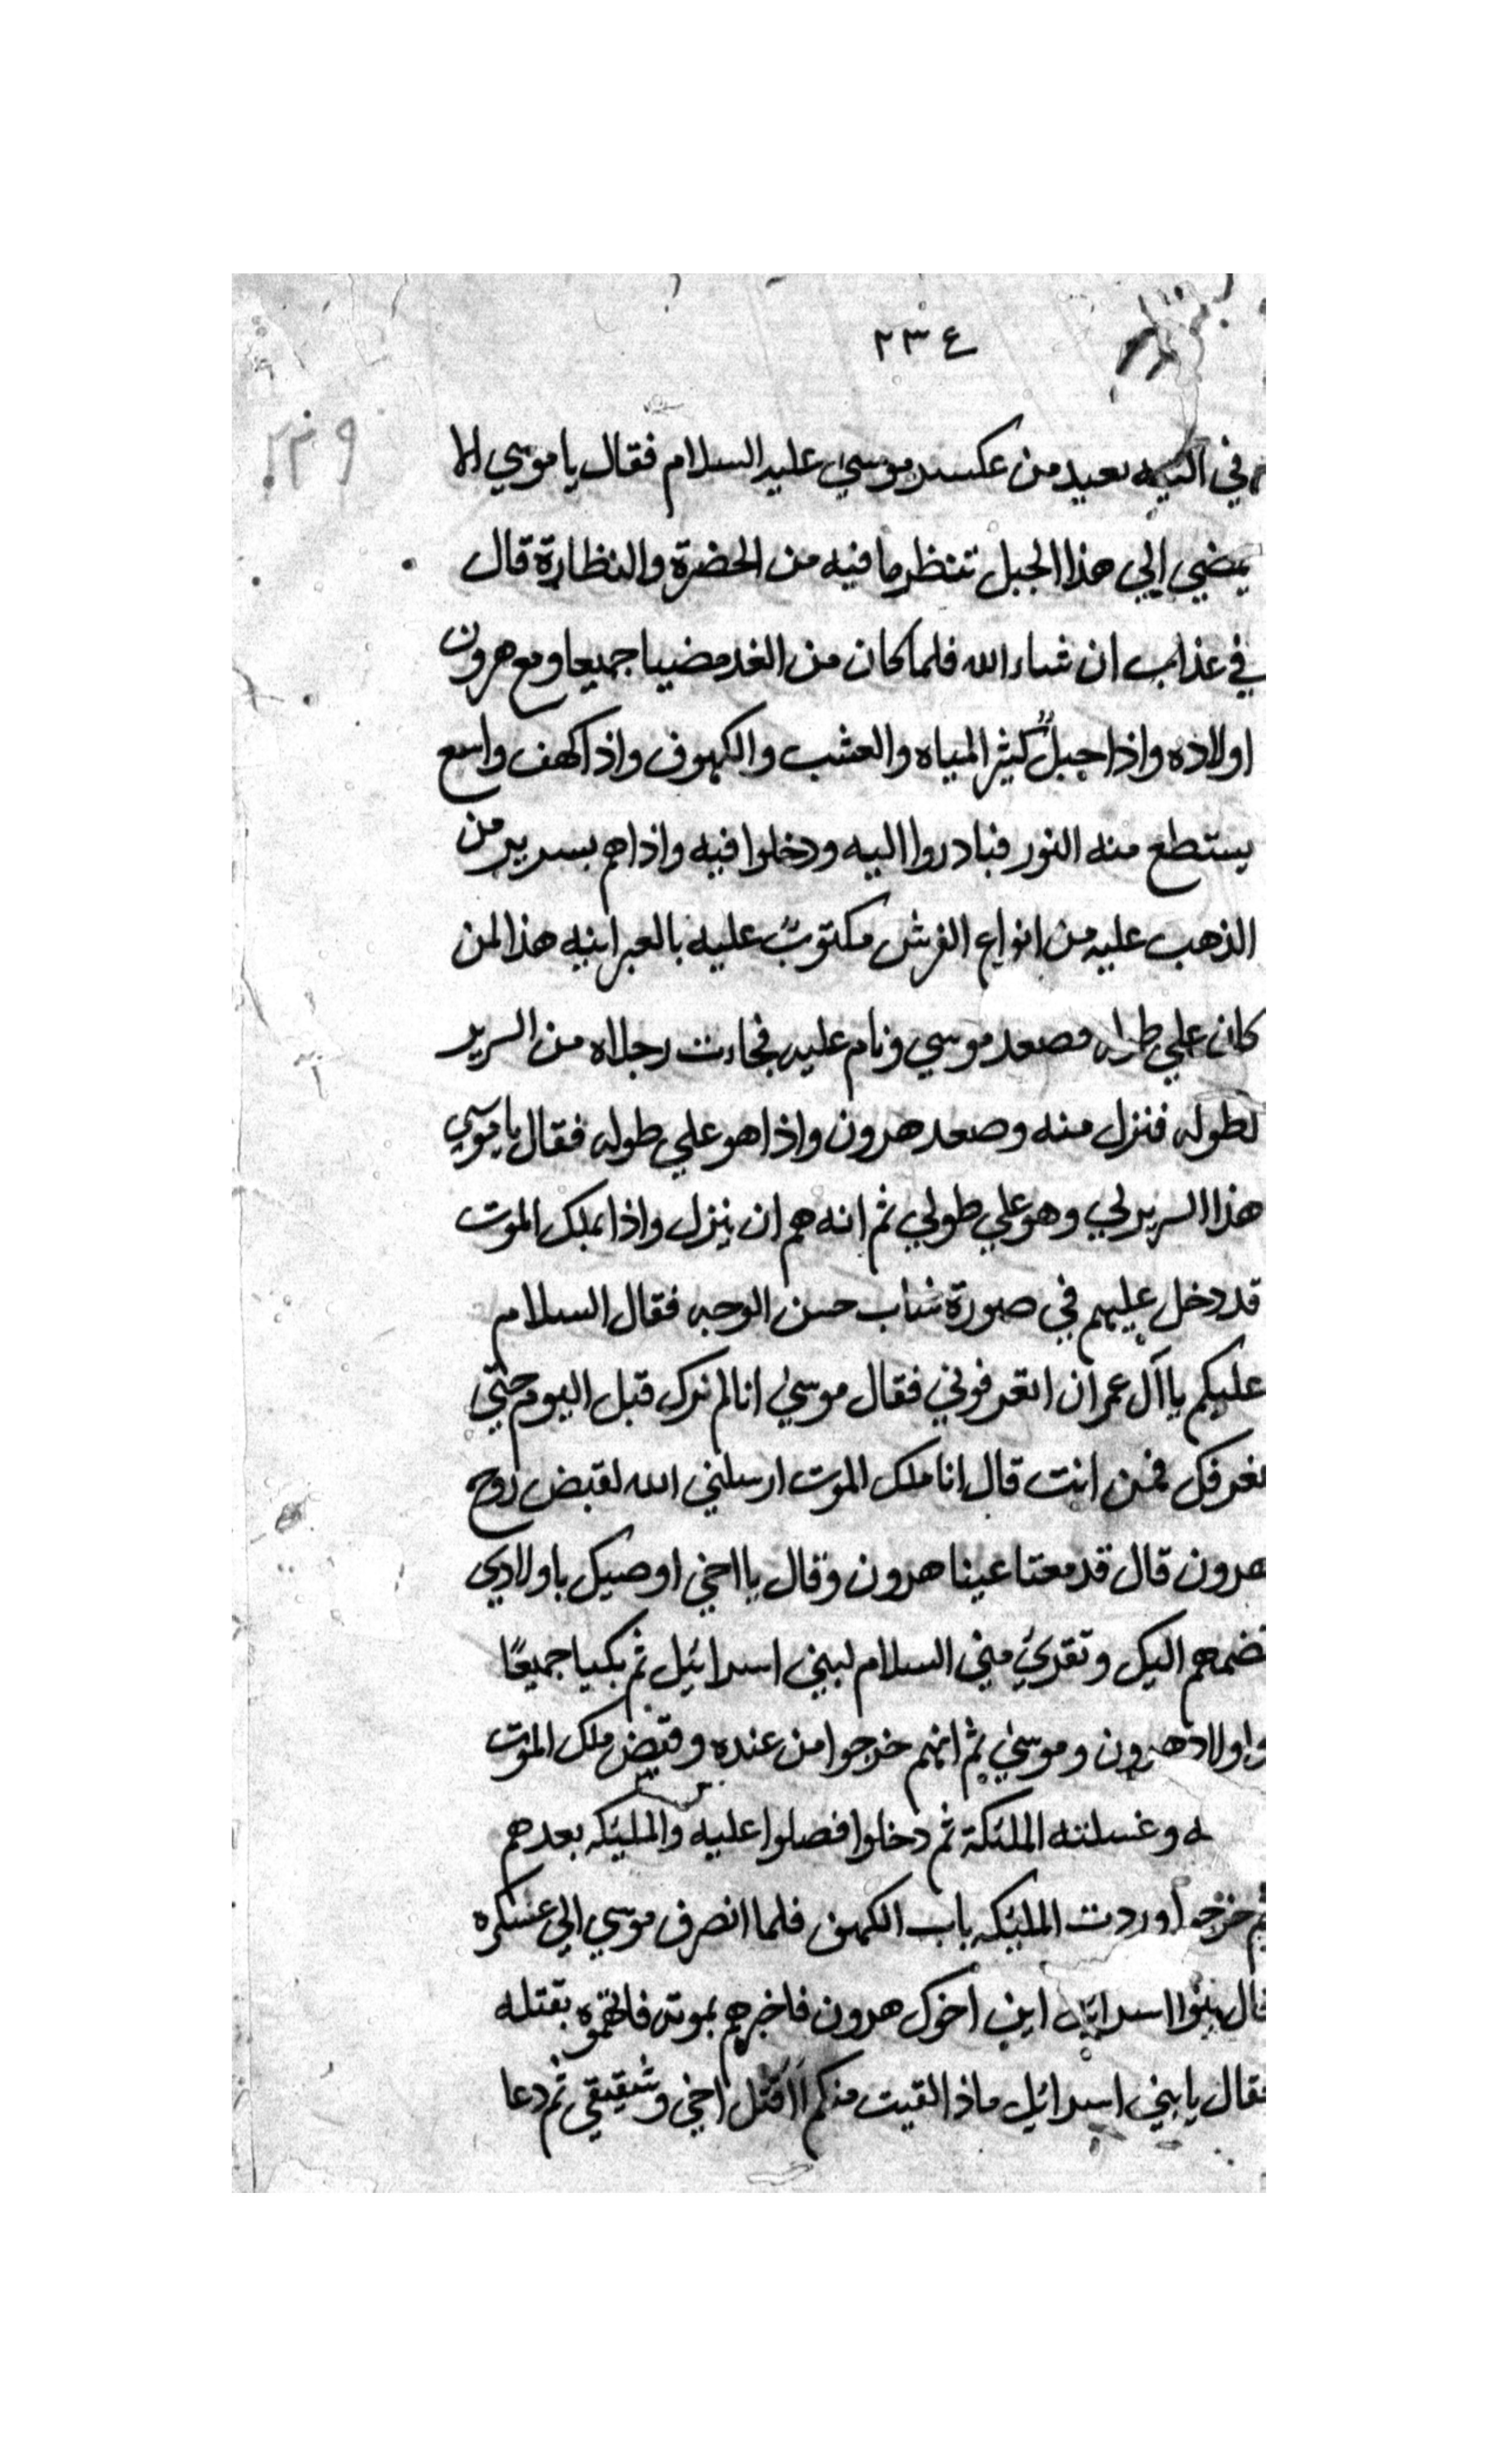 ٢٣٤
٢٣٩
في التيه بعيد من عكسر موسي عليه السلام فقال يا موسي الا
يمضي الي هذا الجبل تنظر ما فيه من الخضرة والنظارة قال
في عذاب ان شاء الله فلما كان من الغد مضيا جميعا ومع هرون
اولاده واذا جبلٌ كثير المياه والعشب والكهوف واذا كهف واسع
يستطع منه النور فبادروا اليه ودخلوا فيه واذا هم بسرير من
الذهب عليه من انواع الفرش مكتوبٌ عليه بالعبرانيه هذا لمن
كان علي طوله فصعد موسي ونام عليه فجاءت رجلاه من السرير
لطوله فنزل منه وصعد هرون واذا هو علي طوله فقال يا موسي
هذا السرير لي وهو علي طولي ثم انه هم ان ينزل واذا بملك الموت
قد دخل عليهم في صورة شاب حسن الوجه فقال السلام
عليكم يا آل عمران اتعرفوني فقال موسي انا لم نرك قبل اليوم حتي
نعرفك فمن انت قال انا ملك الموت ارسلني الله لقبض روح
هرون قال قدمعتا عينا هرون وقال يا اخي اوصيك باولادي
تضمهم اليك وتقري مني السلام لبني اسرائيل ثم بكيا جميعًا
واولاد هرون وموسي ثم انهم خرجوا من عنده وقبض ملك الموت
وغسلته الملئكة ثم دخلوا فصلوا عليه والمليئكه بعدهم
ثم خرجوا وردت المليئكه باب الكهف فلما انصرف موسي الي عسكره
قال بنوا اسرائيل اين اخوك هرون فاخبرهم بموته فاتهموه بقتله
فقال يا بني اسرائيل ماذا القيت منكم أاقتل اخي وشقيقي ثم دعا